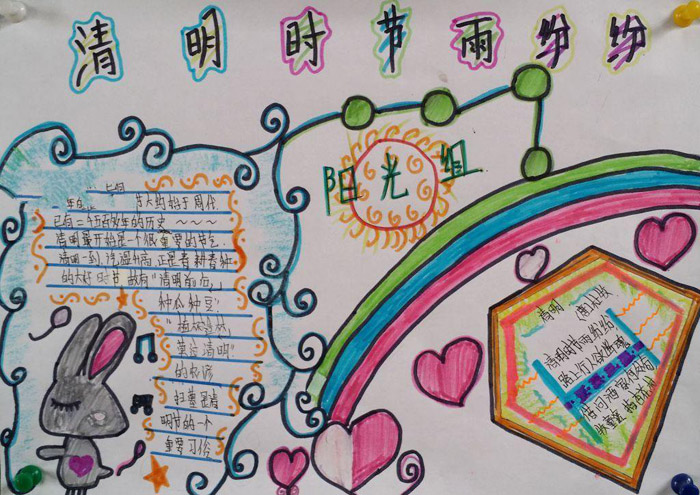 清明时节雨纷纷
阳光组
大约始于周代
已有二千五百多年的历史
清明最开始是一个很重要的节气
清明一到,气温升高,正是春耕春种
的大好时节,故有"清明前后,
种瓜种豆"
"植树造林,
莫过清明"
的农谚
扫墓是清
明节的一个
重要习俗
清明 (唐)杜牧
清明时节雨纷纷
路上行人欲断魂
借问酒家何处有
牧童遥指杏花村